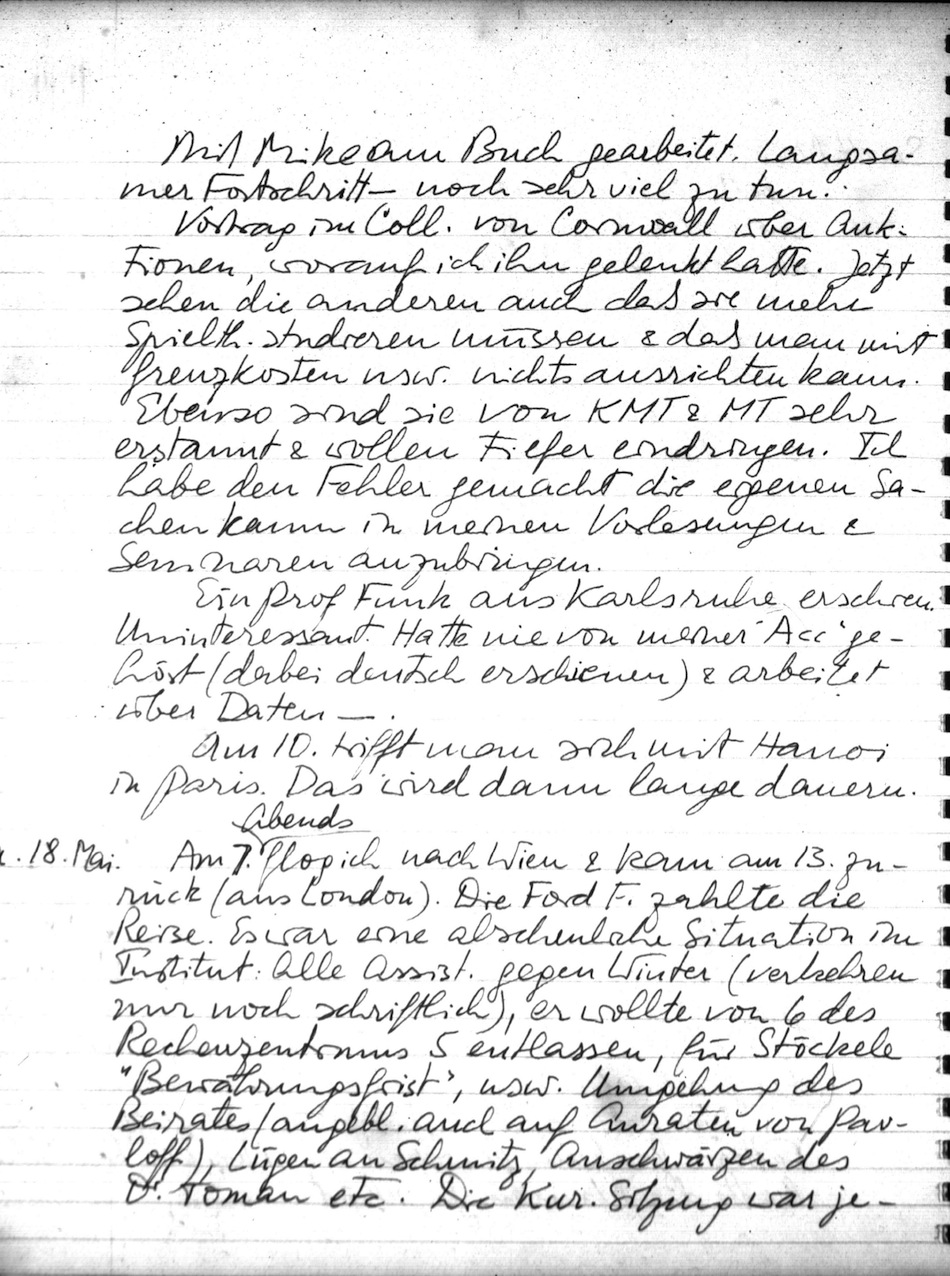 Mit Mike am Buch gearbeitet. Langsa-
mer Fortschritt – noch sehr viel zu tun.
Vortrag im Coll. von Cornwall über Auk-
tionen, worauf ich ihn gelenkt hatte. Jetzt
sehen die anderen auch das sie mehr
Spielth. studieren müssen & das man mit
Grenzkosten usw. nichts ausrichten kann.
Ebenso sind sie von KMT & MT sehr
erstaunt & wollen tiefer eindringen. Ich
habe den Fehler gemacht die eigenen Sa-
chen kaum in meinen Vorlesungen &
Seminaren anzubringen.
Ein Prof Funk aus Karlsruhe erschien.
Uninteressant. Hatte nie von meiner "Acc" ge-
hört (dabei deutsch erschienen) & arbeitet
über Daten —.
Am 10. trifft man sich mit Hanoi
in Paris. Das wird dann lange dauern.
Abends
18. Mai. Am 7. flog ich nach Wien & kam am 13. zu-
rück (aus London). Die Ford F. zahlte die
Reise. Es war eine abscheuliche Situation im
Institut: Alle Assist. gegen Winter (verkehren
nur noch schriftlich), er wollte von 6 des
Rechenzentrums 5 entlassen, für Stöckele
"Bewährungsfrist", usw. Umgehung des
Beirates (angebl. auch auf Anraten von Pav-
loff), Lügen an Schmitz, Anschwärzen des
D. Toman etc. Die Kur. Sitzung war je-